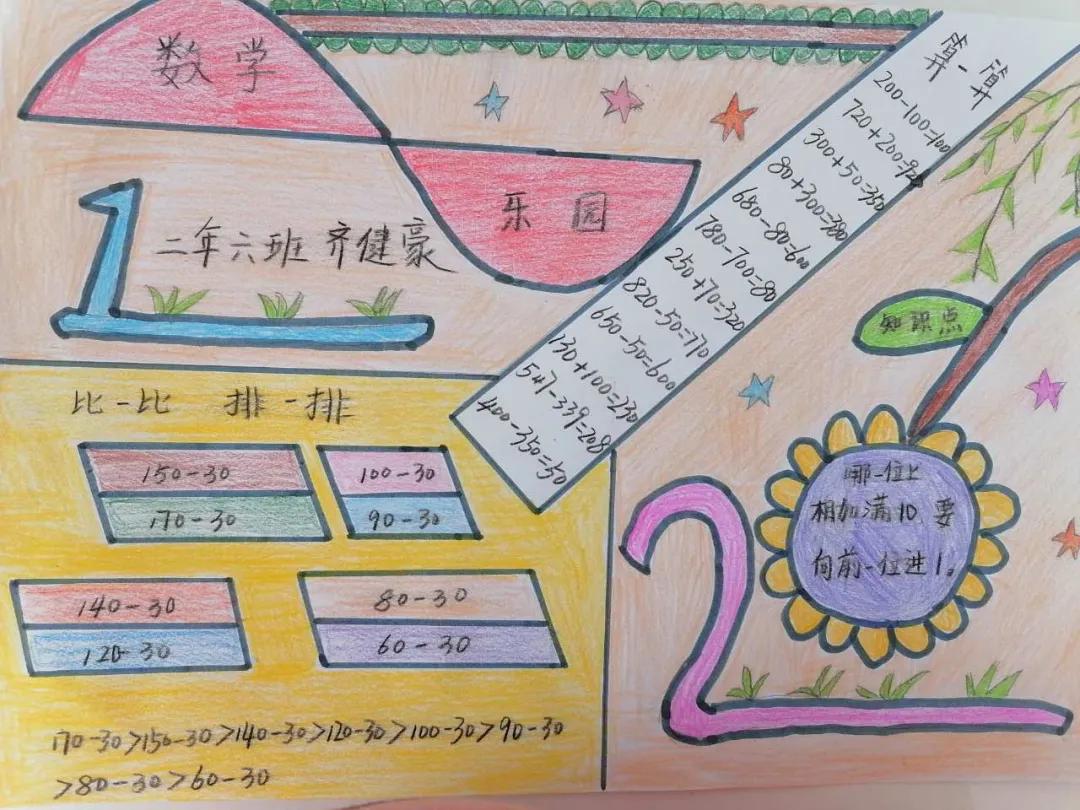 数学
乐园
二年六班 齐健豪
算一算
200-100=100
720+200=920
300+50=350
80+300=380
680-80=600
780-700=80
250+70=320
820-50=770
650-50=600
130+100=230
547-339=208
400-350=50
知识点
哪一位上
相加满10要
向前一位进1。
比一比 排一排
150-30
170-30
100-30
90-30
140-30
120-30
80-30
60-30
170-30>150-30>140-30>120-30>100-30>90-30
>80-30>60-30